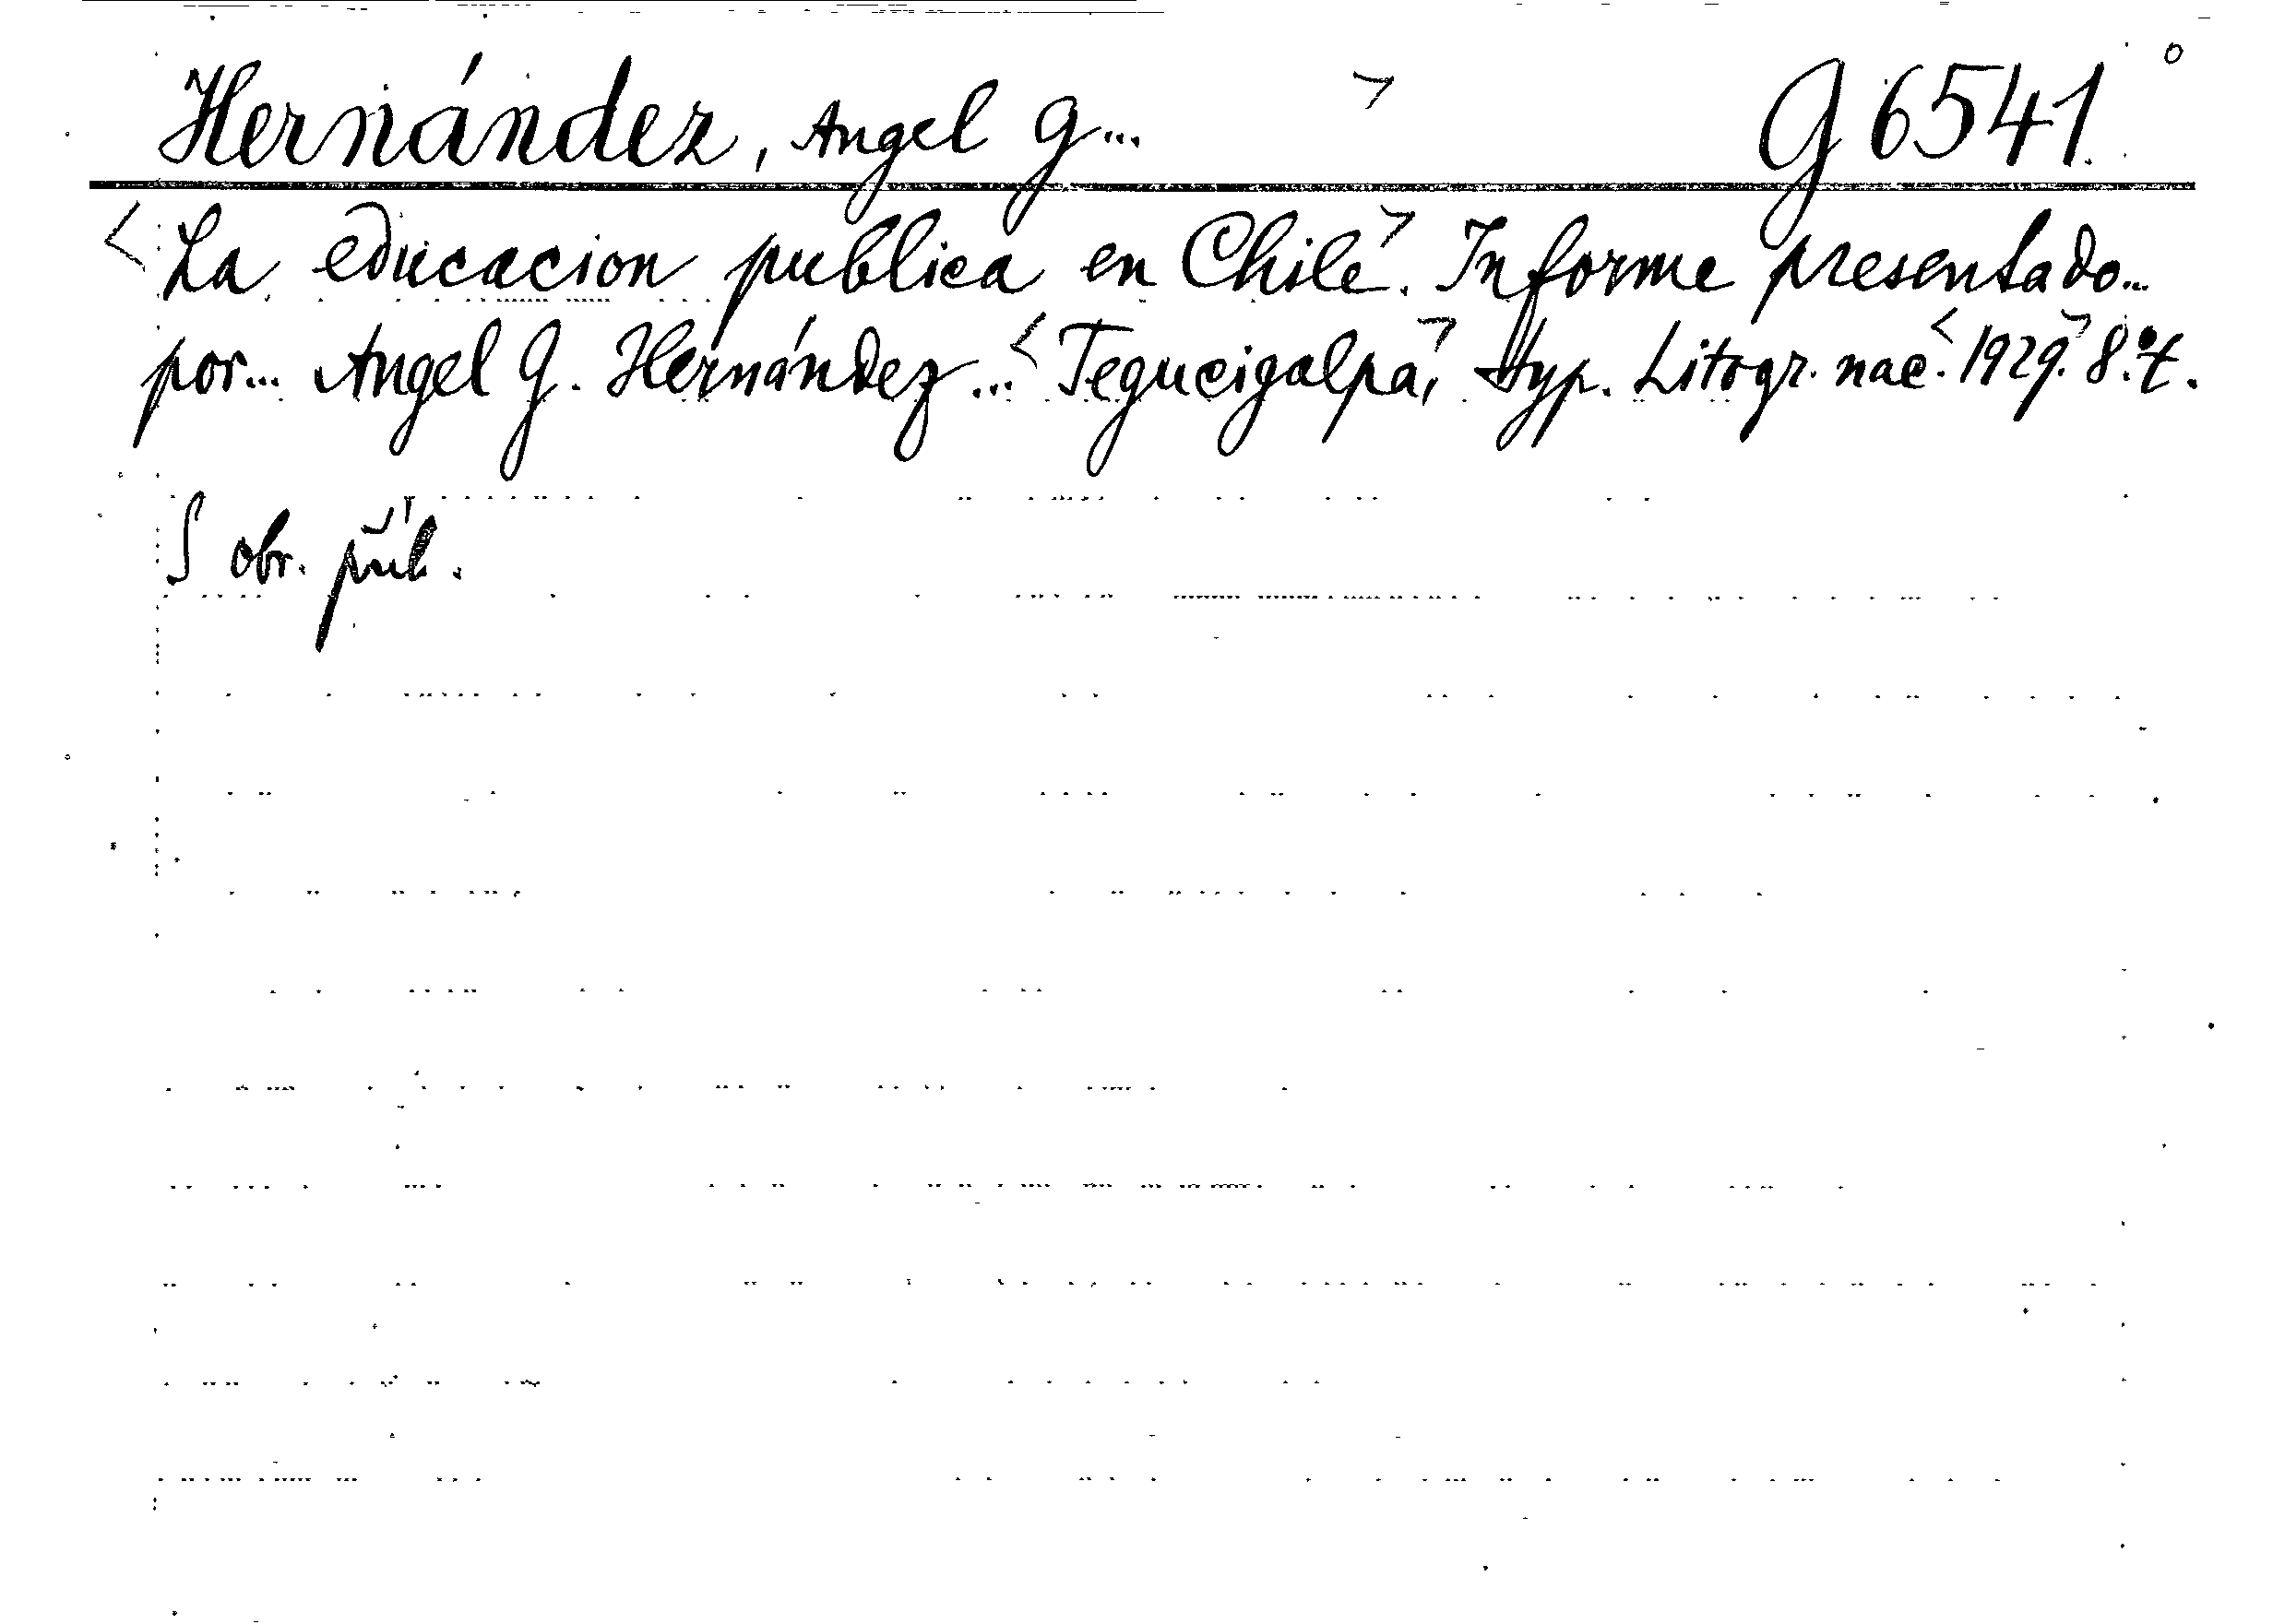 Hernández, Angel G... > G 6541.
<La educacion publica en Chile>. Informe presentado...
por... Angel G. Hernández... <Tegucigalpa>, Typ. Litogr. nac. <1929.> 8.° t.
S obr. příl.